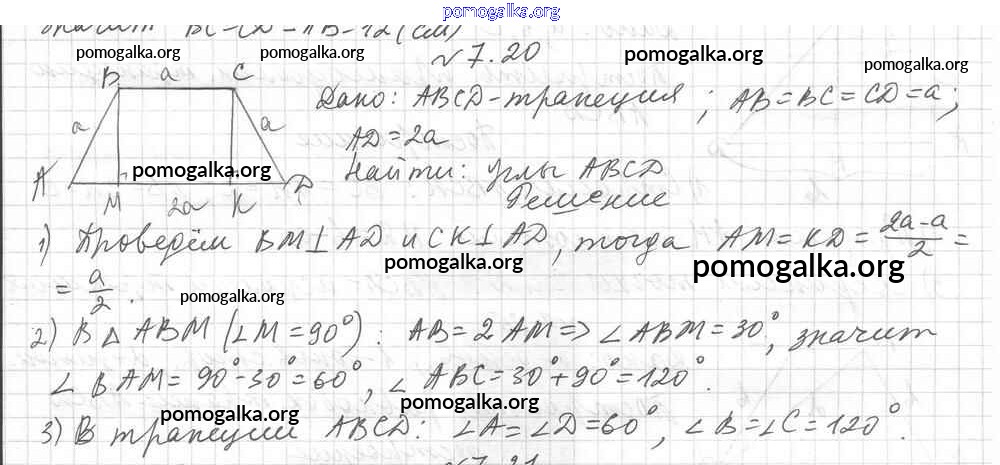 pomogalka.org
BC=CD=AB=12(см)
pomogalka.org
N7.20
pomogalka.org
B a C
Дано: ABCD-трапеция; AB=BC=CD=a;
pomogalka.org
a a
AD=2a
pomogalka.org
Найти: углы ABCD
A M 2a K D
Решение
1) Проведём BM⊥AD и CK⊥AD, тогда AM=KD=(2a-a)/2=
pomogalka.org
pomogalka.org
=a/2.
pomogalka.org
2) В △ABM (∠M=90°): AB=2AM=>∠ABM=30°, значит
∠BAM=90°-30°=60°, ∠ABC=30°+90°=120°.
pomogalka.org
pomogalka.org
3) В трапеции ABCD: ∠A=∠D=60°, ∠B=∠C=120°.
pomogalka.org
N7.21